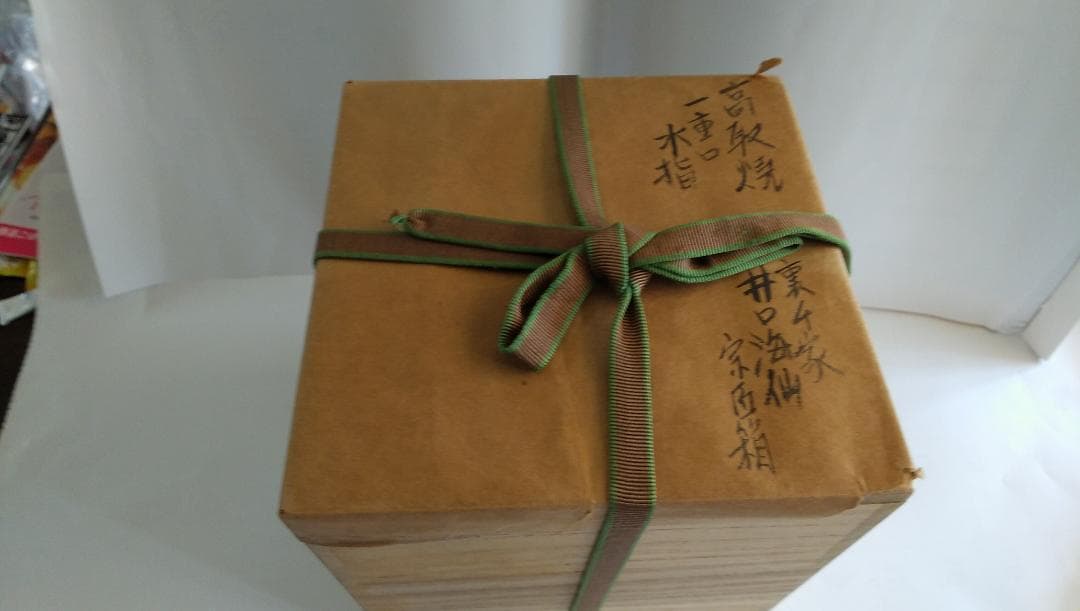 高取焼
一重口
水指
裏千家
井口海仙
宗匠箱